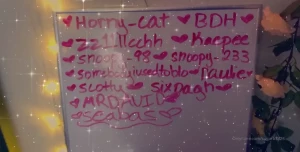 ♥Horny-cat ♥BDH
♥zz1llcchh ♥Kaepee
♥snoop-98♥snoopy-933
♥somebodyiusedtoblo♥
♥scotty♥ sixpagh♥
♥MRDAVID♥
♥scabas♥